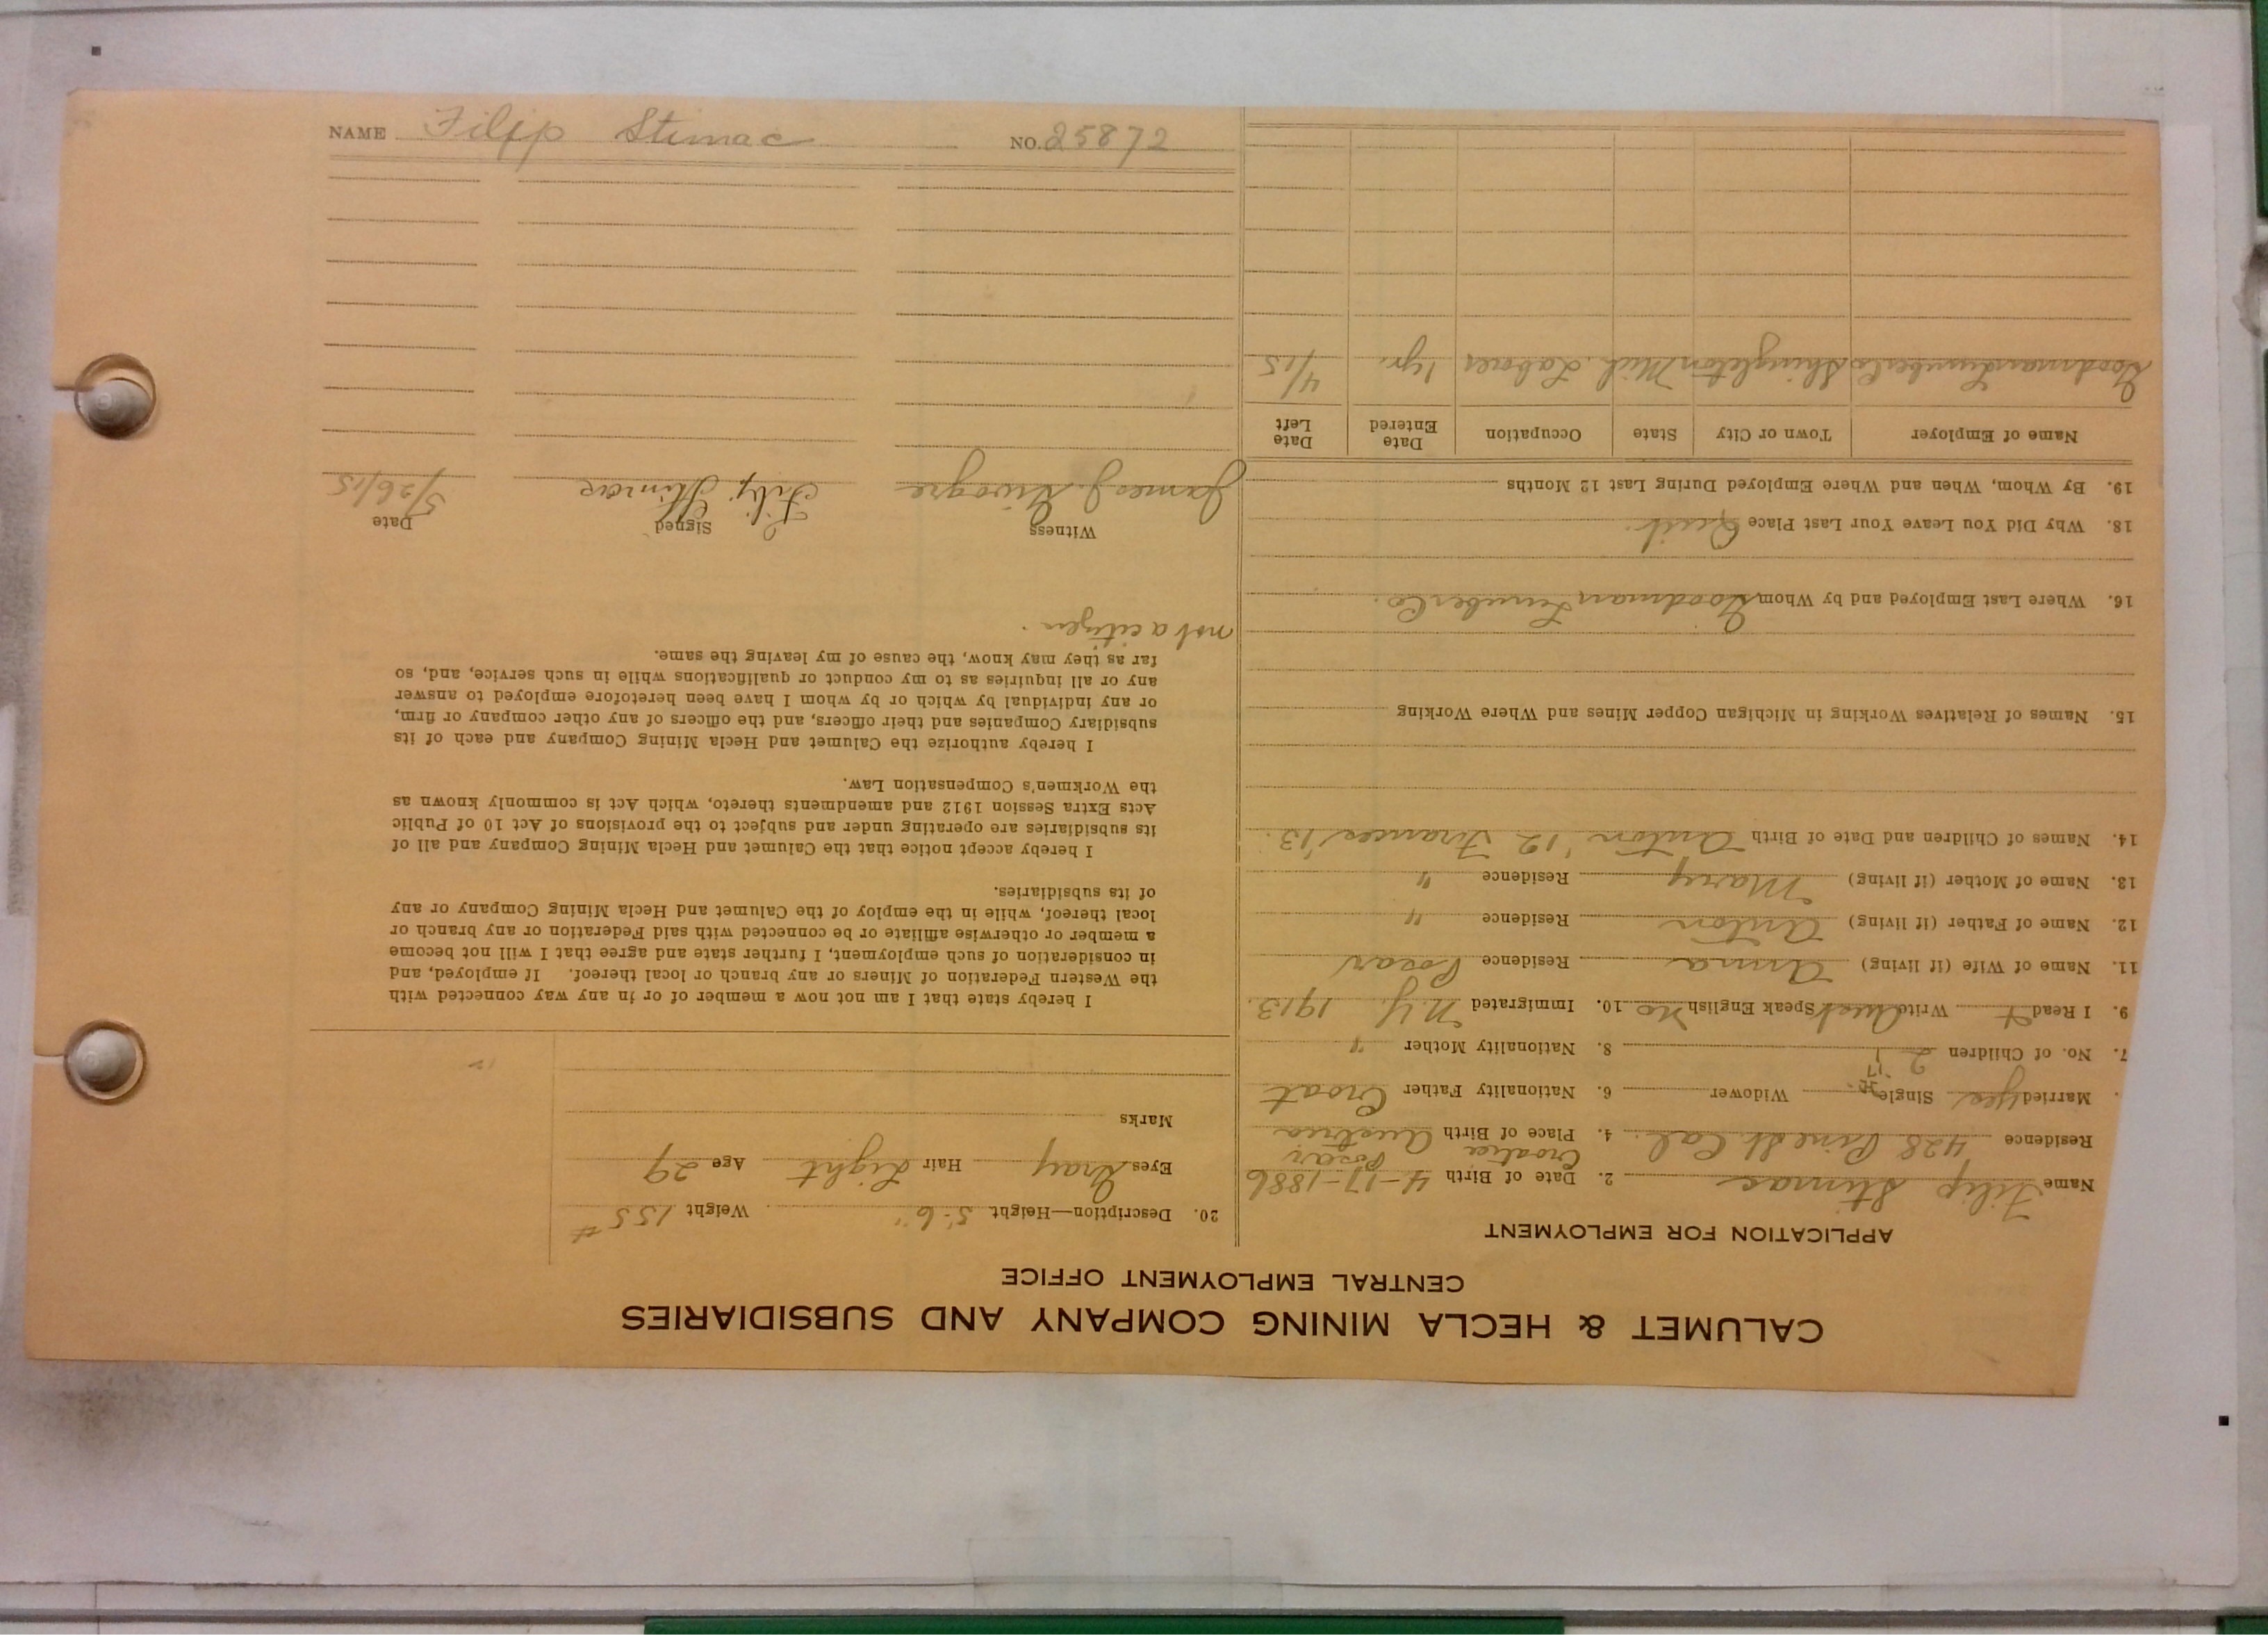 CALUMET & HECLA MINING COMPANY AND SUBSIDIARIES
CENTRAL EMPLOYMENT OFFICE
APPLICATION FOR EMPLOYMENT
Name Filip Stimac 2. Date of Birth 4-17-1886
Croatia Pozar
Residence 428 Pine St. Cal. 4. Place of Birth Austria
Married yes Single Widower 6. Nationality Father Croat
7. No. of Children 2 8. Nationality Mother "
9. I Read Write Speak English no 10. Immigrated N.Y. 1913.
11. Name of Wife (if living) Anna Residence Pozar
12. Name of Father (if living) Anton Residence "
13. Name of Mother (if living) Mary Residence "
14. Names of Children and Date of Birth Anton '12 Frances '13.
15. Names of Relatives Working in Michigan Copper Mines and Where Working
16. Where Last Employed and by Whom Goodman Lumber Co.
18. Why Did You Leave Your Last Place Quit.
19. By Whom, When and Where Employed During Last 12 Months
Name of Employer Town or City State Occupation Date Entered Date Left
Goodman Lumber Co Shingleton Mich. Laborer 1 yr. 4/15
20. Description—Height 5-6" Weight 155 #
Eyes Gray Hair Light Age 29
Marks
I hereby state that I am not now a member of or in any way connected with
the Western Federation of Miners or any branch or local thereof. If employed, and
in consideration of such employment, I further state and agree that I will not become
a member or otherwise affiliate or be connected with said Federation or any branch or
local thereof, while in the employ of the Calumet and Hecla Mining Company or any
of its subsidiaries.
I hereby accept notice that the Calumet and Hecla Mining Company and all of
its subsidiaries are operating under and subject to the provisions of Act 10 of Public
Acts Extra Session 1912 and amendments thereto, which Act is commonly known as
the Workmen's Compensation Law.
I hereby authorize the Calumet and Hecla Mining Company and each of its
subsidiary Companies and their officers, and the officers of any other company or firm,
or any individual by which or by whom I have been heretofore employed to answer
any or all inquiries as to my conduct or qualifications while in such service, and, so
far as they may know, the cause of my leaving the same.
not a citizen.
Witness Signed Date
James J. Filip Stimac 5/26/15
NAME Filip Stimac NO. 25872